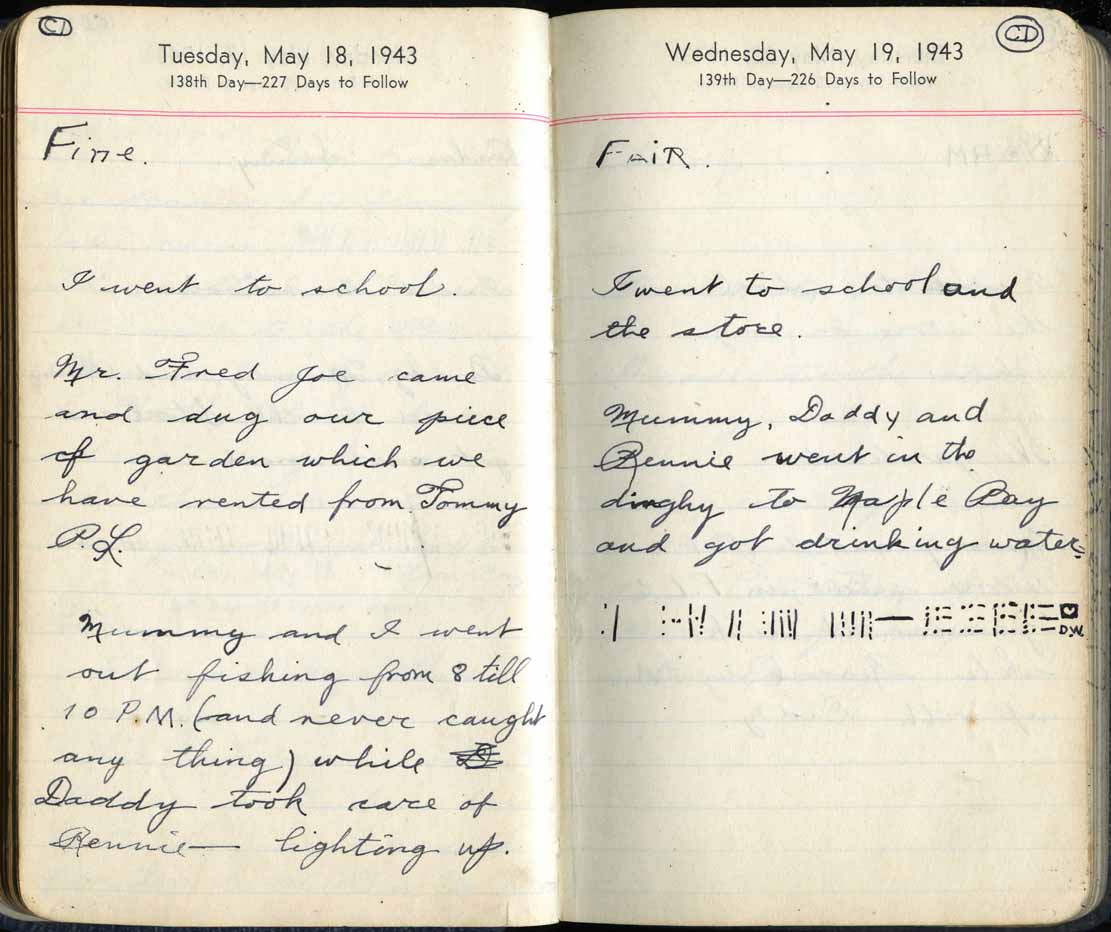 CD
Tuesday, May 18, 1943
138th Day—227 Days to Follow
Fine.
I went to school.
Mr. Fred Joe came
and dug our piece
of garden which we
have rented from Tommy
P.L.
Mummy and I went
out fishing from 8 till
10 P.M. (and never caught
any thing) while
Daddy took care of
Rennie— lighting up.
CD
Wednesday, May 19, 1943
139th Day—226 Days to Follow
FaiR.
I went to school and
the store.
Mummy, Daddy and
Rennie went in the
dinghy to Maple Bay
and got drinking water.
D.W.